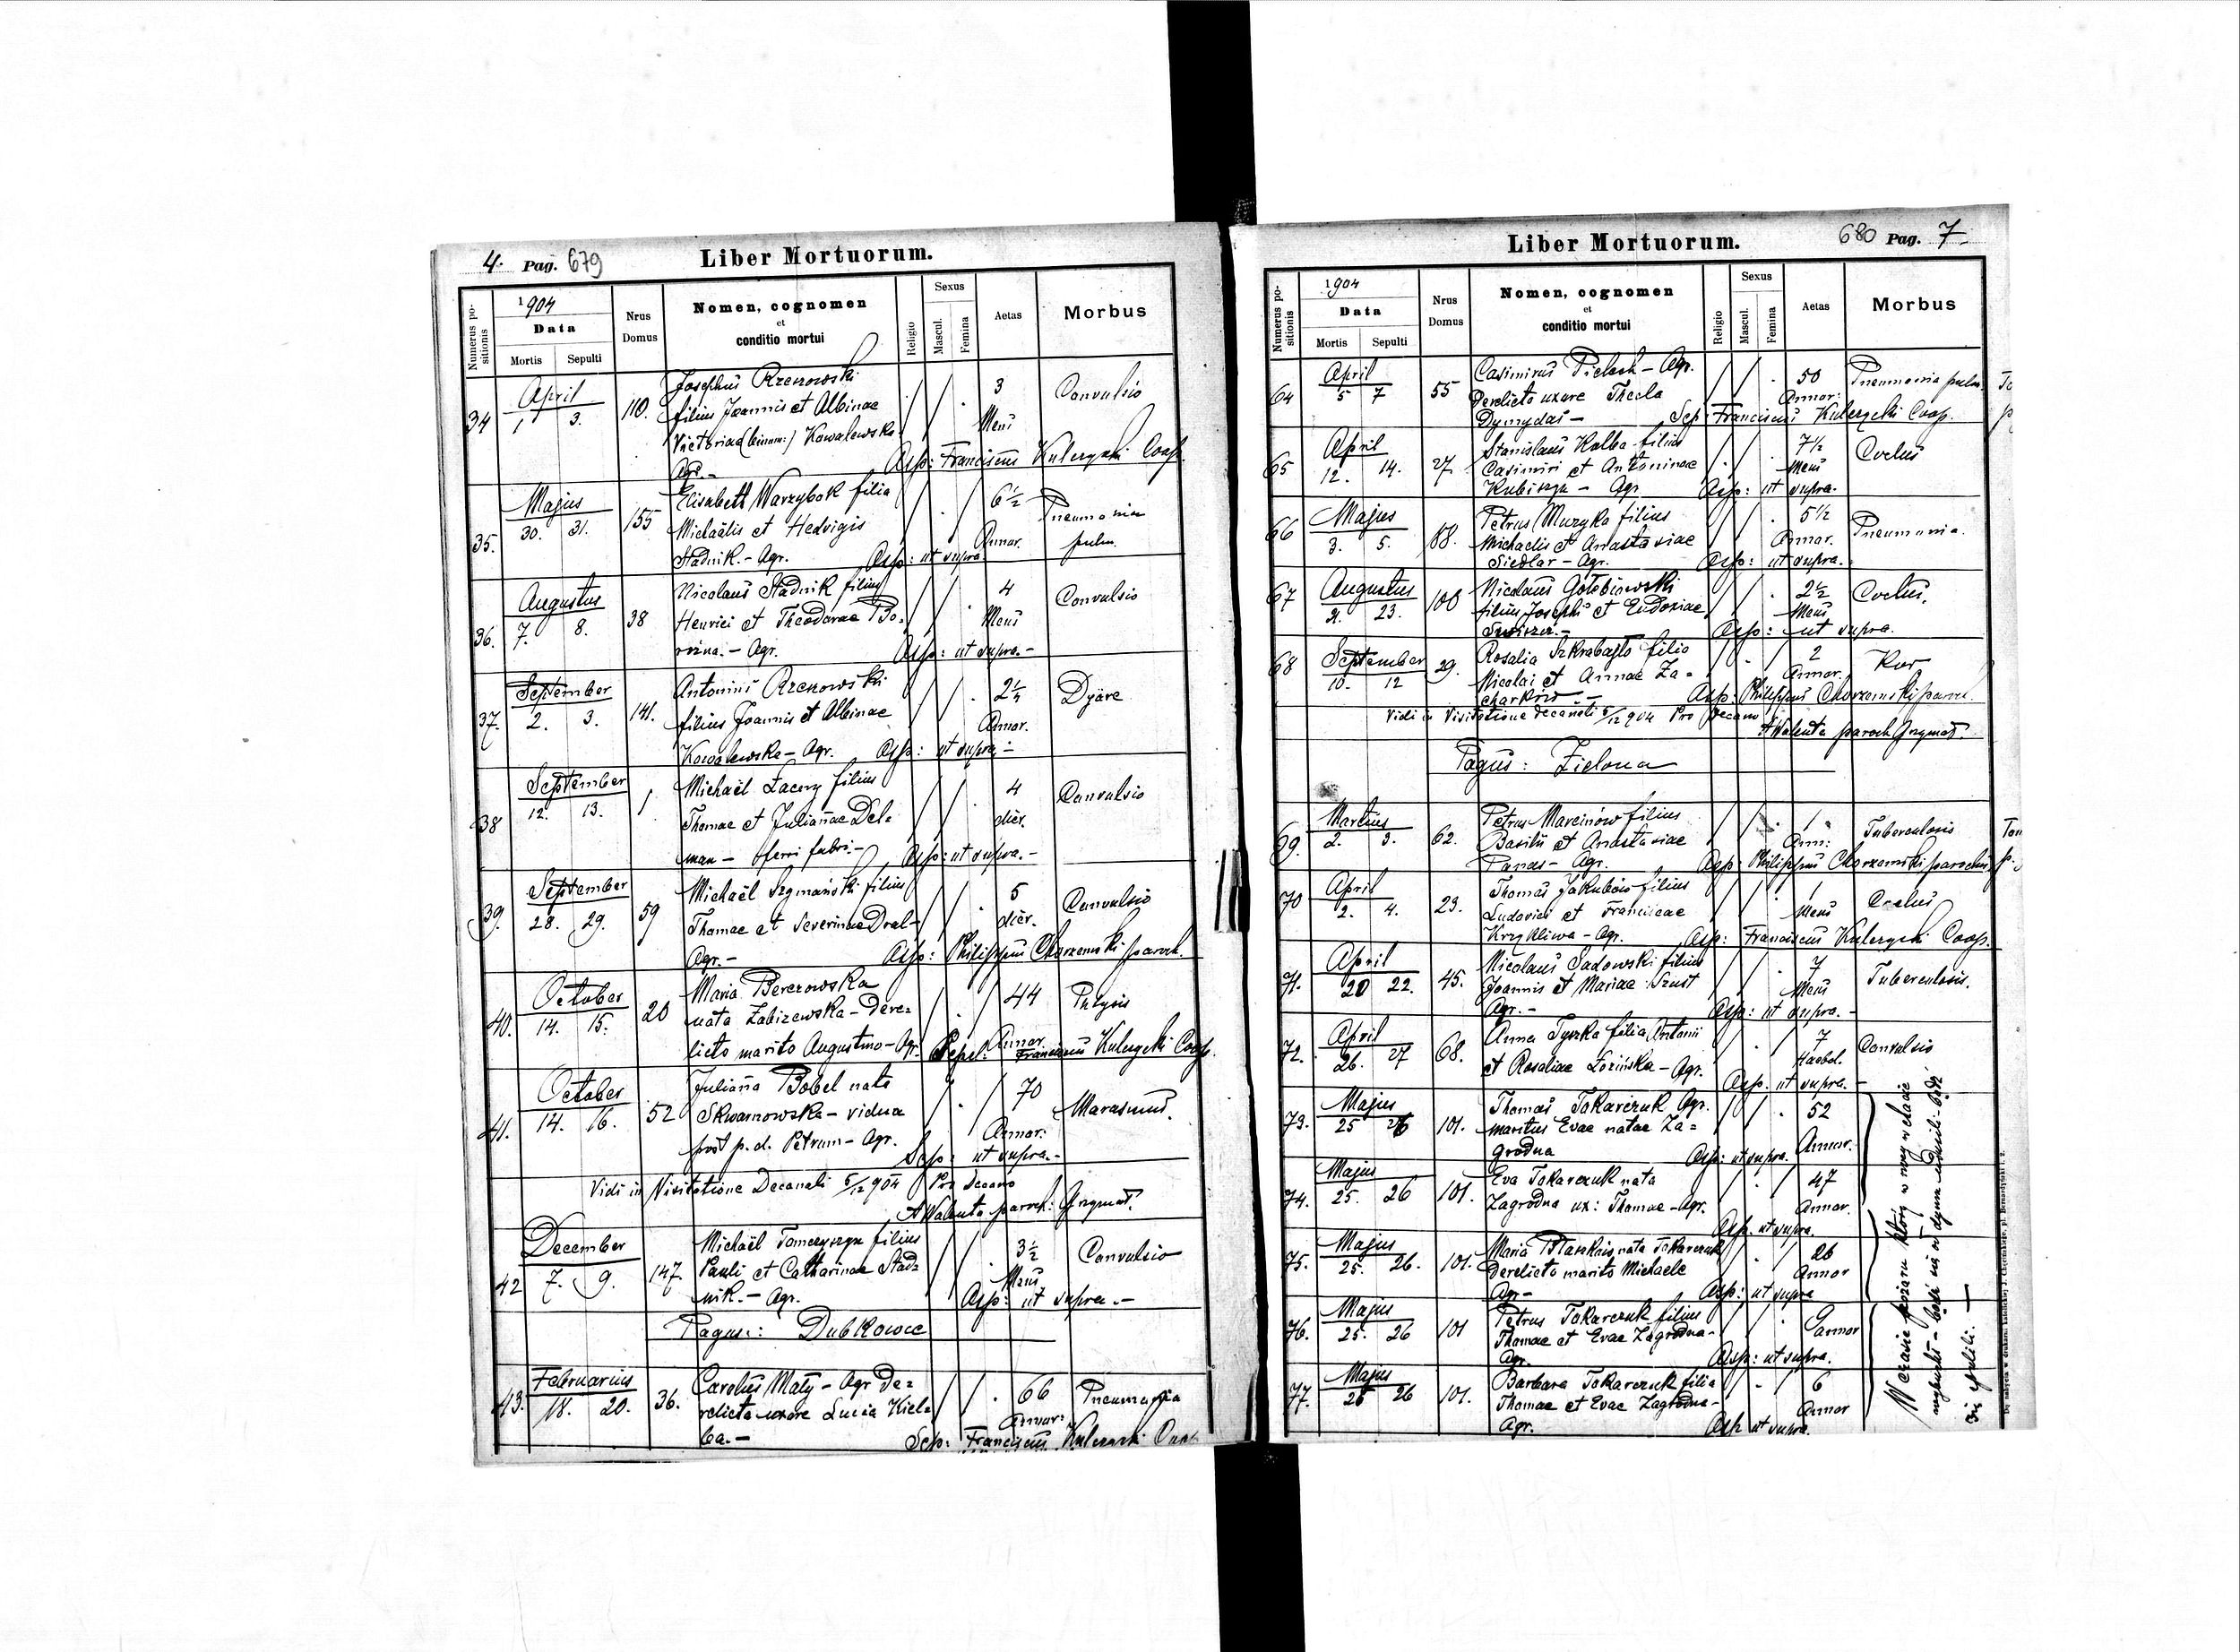 4. Pag. 679
Liber Mortuorum.
Numerus positionis
1904
Data
Mortis Sepulti
Nrus Domus
Nomen, cognomen
et
conditio mortui
Religio
Sexus
Mascul.
Femina
Aetas
Morbus
34 April 1 3. 110. Josephus Rzenowski / / . 3 Convulsio
filius Joannis et Albinae Mens
Victoria (binom:) Kowalewska
Agr. - Asp: Franciscus Kulczycki Coop.
35. Majus 30. 31. 155 Elisabeth Warzybok filia / . / 6½ Pneumonia
Michaëlis et Hedvigis Annor. pulm.
Stadnik. - Agr. Asp: ut supra.
36. Augustus 7. 8. 38 Nicolaus Stadnik filius / / . 4 Convulsio
Henrici et Theodorae Bo- Mens
rozna. - Agr. Asp: ut supra. -
37. September 2. 3. 141. Antonius Rzenowski / / . 2¼ Dyäre
filius Joannis et Albinae Annor.
Kowalewska - Agr. Asp: ut supra -
38 September 12. 13. 1. Michaël Zacery filius / / . 4 Convulsio
Thomae et Juliannae Del- dier.
man - ferri fabri. - Asp: ut supra. -
39. September 28. 29. 59 Michaël Szymański filius / / . 5 Convulsio
Thomae et Severinae Dral- dier.
Agr. - Asp: Philippus Chorzemski paroch.
40. October 14. 15. 20 Maria Berezowska / . / 44 Phtysis
nata Zabizewska - Dere-
licto marito Augustino - Agr. Annor. Sepel: Franciscus Kulczycki Coop.
41. October 14. 16. 52 Julianna Bobel nata / . / 70 Marasmus.
Skwarnowska - vidua
post p. d. Petrum - Agr. Annor.
Sep: ut supra. -
Vidi in Visitatione Decanali 5/12 904 Pro Decano
A Walenta paroch: Grzymał.
42 December 7. 9. 147. Michaël Tomczyszyn filius / / . 3½ Convulsio
Pauli et Catharinae Stad- Mens
nik. - Agr. Asp: ut supra. -
Pagus: Dubkowce
43. Februarius 18. 20. 36. Carolus Mały - Agr De- / / . 66 Pneumonia
relicta uxore Lucia Kiel- Annor:
ba. - Sep: Franciscus Kulczycki Coop
680 Pag. 7
Liber Mortuorum.
Numerus positionis
1904
Data
Mortis Sepulti
Nrus Domus
Nomen, cognomen
et
conditio mortui
Religio
Sexus
Mascul.
Femina
Aetas
Morbus
64 April 5 7 55 Casimirus Pielach - Agr. / / . 50 Pneumonia pulm.
Derelicta uxore Thecla Annor:
Dymydas - Sep: Franciscus Kulczycki Coop.
65 April 12. 14. 27. Stanislaus Kalba filius / / . 7½ Coclus
Casimiri et Antoninae Mens
Kubiszyn - Agr Asp: ut supra.
66 Majus 3. 5. 88. Petrus Muzyka filius / / . 5½ Pneumonia.
Michaelis et Anastasiae Annor.
Siedlar - Agr. Asp: ut supra.
67 Augustus 21. 23. 106 Nicolaus Gołebiowski / / . 2½ Coclus.
filius Josephi et Eudoxiae Mens
Swiszcz. - Asp: ut supra.
68 September 10. 12 29. Rosalia Szkrabajło filia / . / 2 Kur
Nicolai et Annae Za- Annor.
charków - Asp: Philippus Chorzemski paroch.
Vidi in Visitatione decanali 5/12 904 Pro Decano
A Walenta paroch Grzymał.
Pagus: Zielona
69. Martius 2. 3. 62. Petrus Marcinów filius / / . 1 Tuberculosis
Basilii et Anastasiae Ann:
Panas - Agr. Asp: Philippus Chorzemski parochus
70 April 2. 4. 23. Thomas Jakubów filius / / . 1 Coclus
Ludovici et Franciscae Mens
Krzykliwa - Agr. Asp: Franciscus Kulczycki Coop.
71. April 20 22. 45. Nicolaus Sadowski filius / / . 7 Tuberculosis.
Joannis et Mariae Szust Mens
Agr. - Asp: ut supra. -
72. April 26. 27 68. Anna Tyszka filia Antonii / . / 7 Convulsio
et Rosaliae Łozińska - Agr. Haebd.
Asp. ut supra. -
73. Majus 25 26 101. Thomas Tokarczuk Agr. / / . 52
maritus Evae natae Za-
grodna Asp: ut supra. Annor.
74. Majus 25. 26 101. Eva Tokarczuk nata / . / 47
Zagrodna ux: Thomae - Agr. Annor.
Asp. ut supra.
75. Majus 25. 26. 101. Maria nata Tokarczuk / . / 26
Derelicto marito Michaele Annor
Agr - Asp: ut supra
76. Majus 25. 26 101 Petrus Tokarczuk filius / / . 9 annor
Thomae et Evae Zagrodna -
Agr. Asp: ut supra.
77. Majus 25 26 101. Barbara Tokarczuk filia / . / 6
Thomae et Evae Zagrodna - Annor
Agr. Asp ut supra.
W czasie pożaru który w nocy w chacie
wybuchł - bądź się w dymie udusili - bądź
się spalili. -